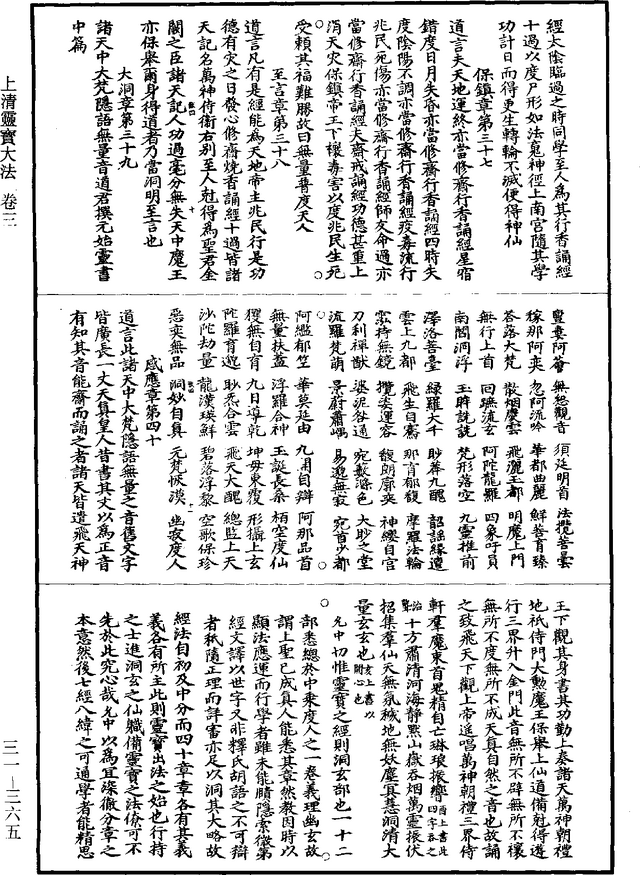 上清靈寶大法 卷三
三一—三六五
經太陰臨過之時同學至人為其行香誦經
十過以度尸形如法魂神徑上南宮隨其學
功計日而得更生轉輪不滅便得神仙
保鎮章第三十七
道言夫天地運終亦當修齋行香誦經星宿
錯度日月失昏亦當修齋行香誦經四時失
度陰陽不調亦當修齋行香誦經疫毒流行
兆民死傷亦當修齋行香誦經師友命過亦
當修齋行香誦經夫齋戒誦經功德甚重上
消天災保鎮帝王下禳毒害以度兆民生死
受賴其福難勝故曰無量普度天人
至言章第三十八
道言凡有是經能為天地帝主兆民行是功
德有災之日發心修齋燒香誦經十過皆諸
天記名萬神侍衛右別至人尅得為聖君金
闕之臣諸天記人功過毫分無失天中魔王
亦保舉爾身得道者乃當洞明至言也
大洞章第三十九
諸天中大梵隱語無量音道君撰元始靈書
中篇
亶婁阿薈 無惒觀音 須延明首 法攬菩曇
稼那阿奕 忽阿流吟 華都曲麗 鮮菩育臻
答落大梵 散烟慶雲 飛灑玉都 明魔上門
無行上首 回蹠流玄 阿陀龍羅 四象吁員
南閻洞浮 玉眸詵詵 梵形落空 九靈推前
澤洛菩臺 綠羅大千 眇莽九醜 韶謡緣邅
雲上九都 飛生自騫 那育郁馥 摩羅法輪
霐持無鏡 攬姿運容 馥朗廓奕 神纓自宮
刀利禪猷 婆泥咎通 宛藪滌色 大眇之堂
流羅梵萌 景蔚蕭嵎 易邈無寂 宛首少都
阿䍀郁竺 華莫延由 九開自辯 阿那品首
無量扶蓋 浮羅合神 玉誕長桑 栢空度仙
獲無自育 九日導乾 坤母東覆 形攝上玄
陀羅育邈 眇炁合雲 飛天大醜 總監上天
沙陀劫量 龍漢瑛鮮 碧落浮黎 空歌保珍
惡奕無品 洞妙自真 元梵恢漠 幽寂度人
感應章第四十
道言此諸天中大梵隱語無量之音舊文字
皆廣長一丈天真皇人昔書其文以為正音
有知其音能齋而誦之者諸天皆遣飛天神
王下觀其身書其功勤上奏諸天萬神朝禮
地祇侍門大勲魔王保舉上仙道備尅得遊
行三界升入金門此音無所不辟無所不禳
無所不度無所不成天真自然之音也故誦
之致飛天下觀上帝遥唱萬神朝禮三界侍
軒羣魔東首鬼精自亡琳琅振響
十方肅清河海靜默山嶽吞烟萬靈振伏
招集羣仙天無氛穢地無妖塵冥慧洞清大
量玄玄也
允中切惟靈寶之經則洞玄部也一十二
部悉總於中乗度人之一卷義理幽玄故
謂上聖已成真人能悉其章然教因時以
顯法應運而行學者雖未能賾隱索微第
經文譯以世字又非釋氏胡語之不可辯
者秖隨正理而詳審亦足以洞其大略故
經法自初及中分而四十章章各有其義
義各有所主此則靈寶出法之始也行持
之士進洞玄之仙職備靈寶之法儻可不
先於此究心哉允中以為宜深徹分章之
本意然後七經八緯之可通學者能精思